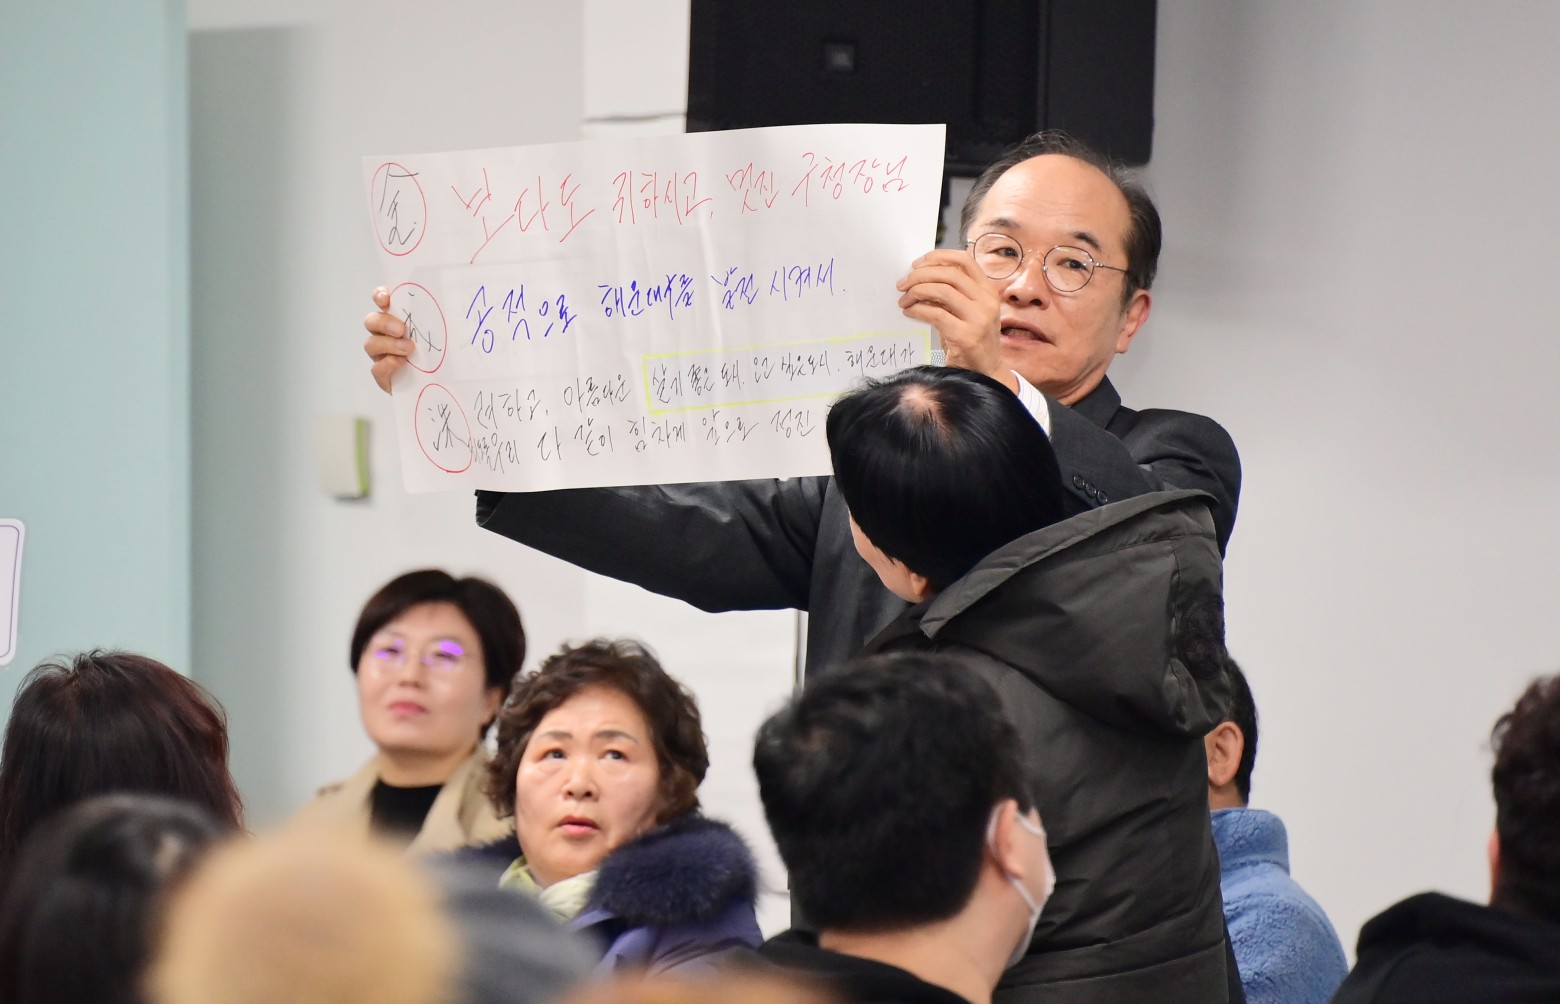 金 보다도 귀하시고, 멋진 구청장님
成 공적으로 해운대를 발전 시켜서.
洙 려하고, 아름다운 살기 좋은 해운대가
우리 다 같이 힘차게 앞으로 정진